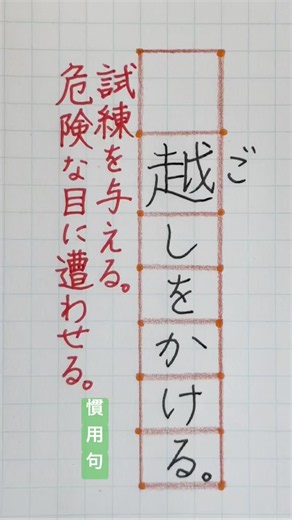 越しをかける。
ご
試練を与える。
危険な目に遭わせる。
慣用句